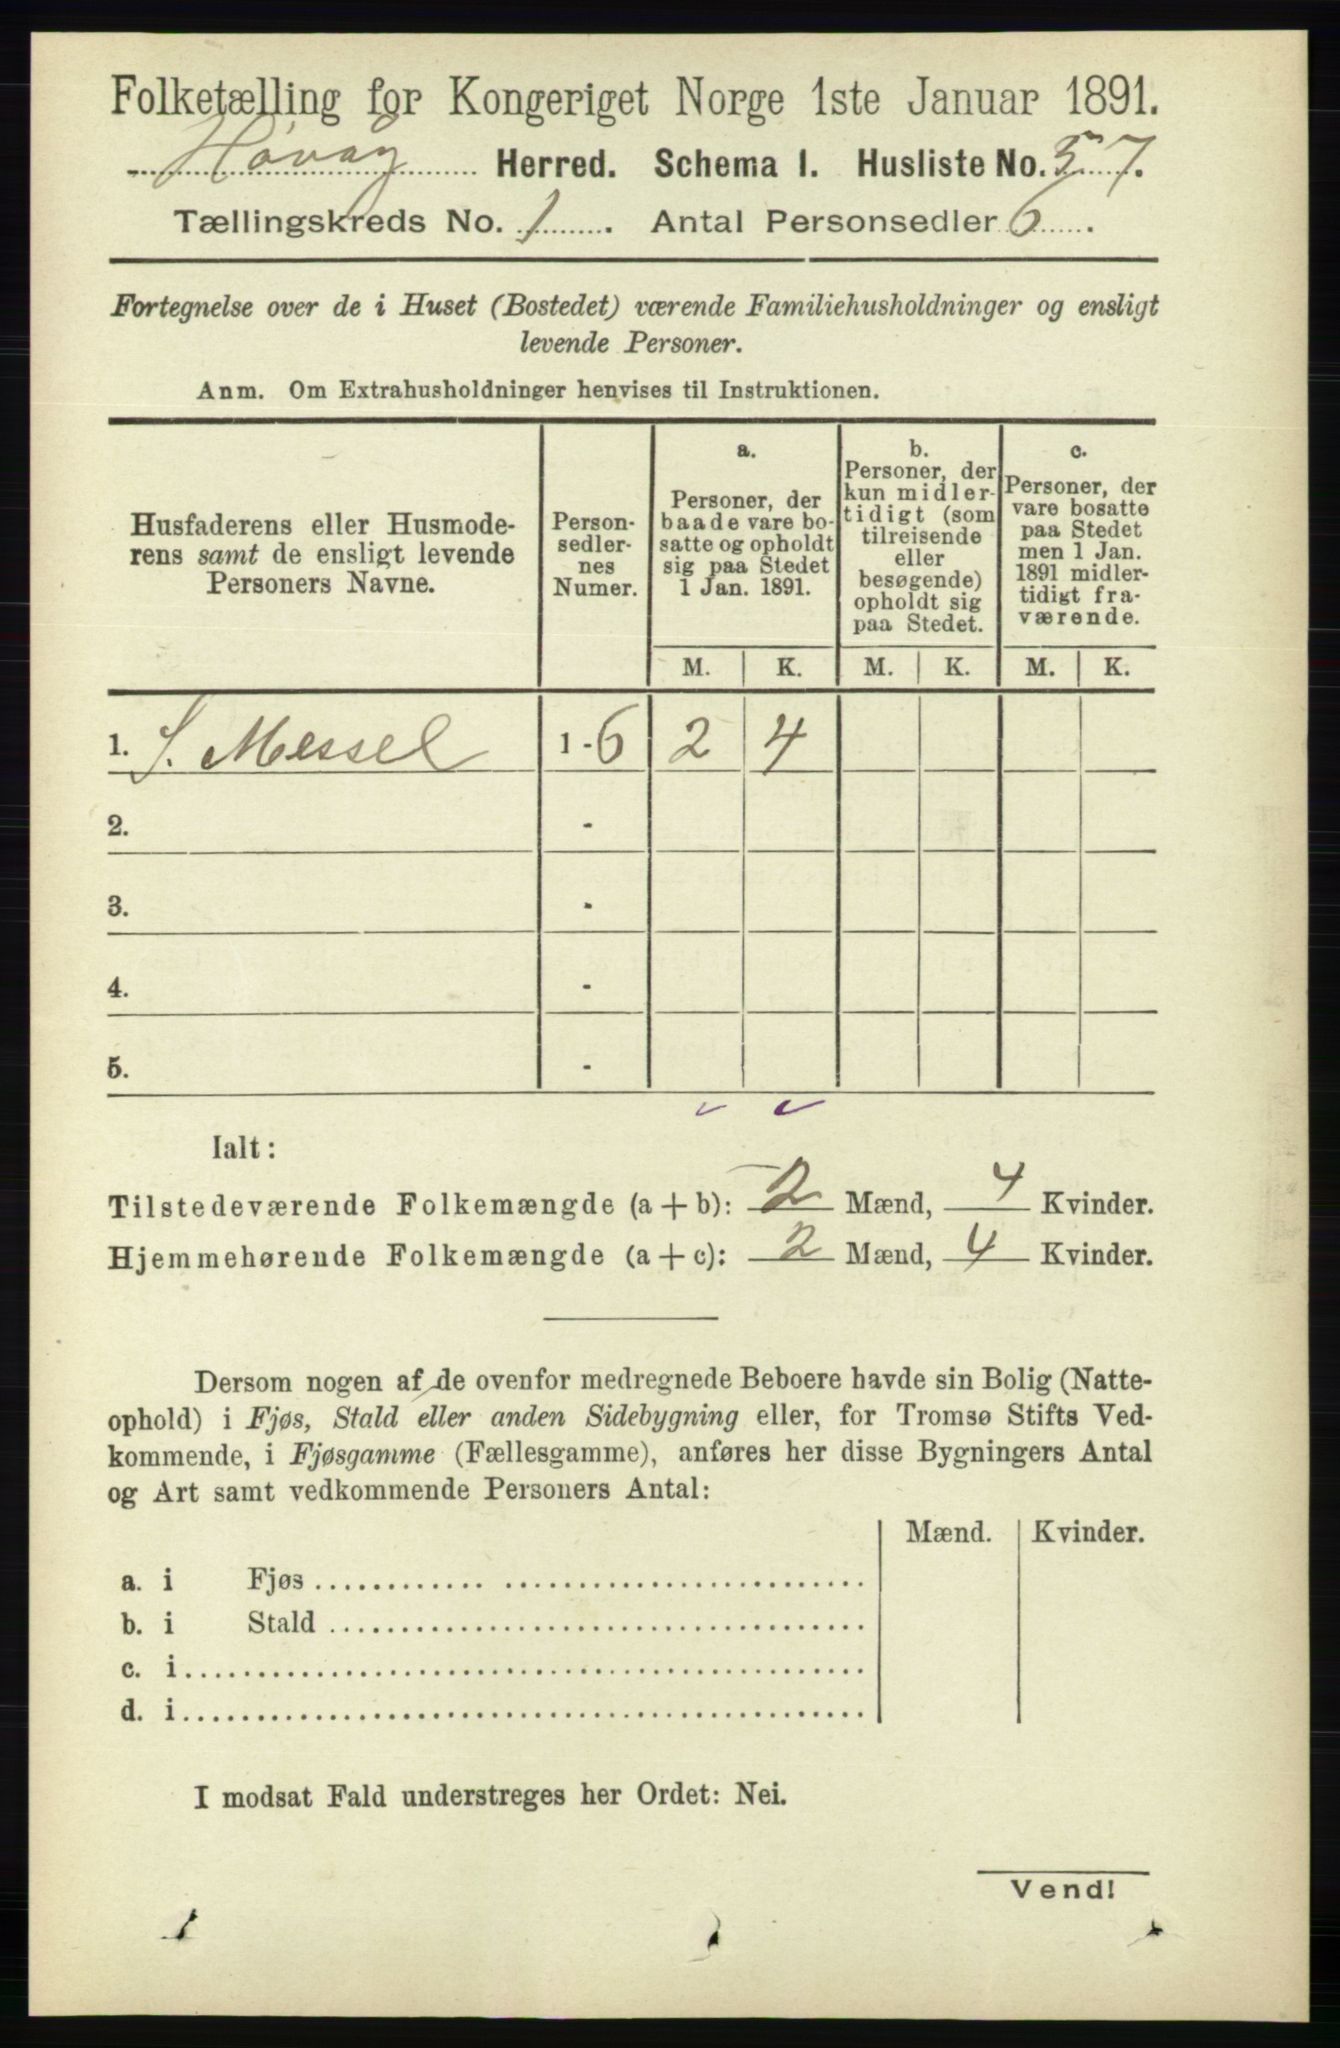 Folketælling for Kongeriget Norge 1ste Januar 1891.
Høvåg Herred. Schema I. Husliste No. 57.
Tællingskreds No. 1. Antal Personsedler 6.
Fortegnelse over de i Huset (Bostedet) værende Familiehusholdninger og ensligt
levende Personer.
Anm. Om Extrahusholdninger henvises til Instruktionen.
Husfaderens eller Husmode-
rens samt de ensligt levende
Personers Navne.
Person-
sedler-
nes
Numer.
a.
Personer, der
baade vare bo-
satte og opholdt
sig paa Stedet
1 Jan. 1891.
b.
Personer, der
kun midler-
tidigt (som
tilreisende
eller
besøgende)
opholdt sig
paa Stedet.
c.
Personer, der
vare bosatte
paa Stedet
men 1 Jan.
1891 midler-
tidigt fra-
værende.
M. K. M. K. M. K.
1. S. Messel 1 - 6 2 4
2. -
3. -
4. -
5. -
Ialt:
Tilstedeværende Folkemængde (a + b): 2 Mænd, 4 Kvinder.
Hjemmehørende Folkemængde (a + c): 2 Mænd, 4 Kvinder.
Dersom nogen af de ovenfor medregnede Beboere havde sin Bolig (Natte-
ophold) i Fjøs, Stald eller anden Sidebygning eller, for Tromsø Stifts Ved-
kommende, i Fjøsgamme (Fællesgamme), anføres her disse Bygningers Antal
og Art samt vedkommende Personers Antal:
Mænd. Kvinder.
a. i Fjøs
b. i Stald
c. i
d. i
I modsat Fald understreges her Ordet: Nei.
Vend!